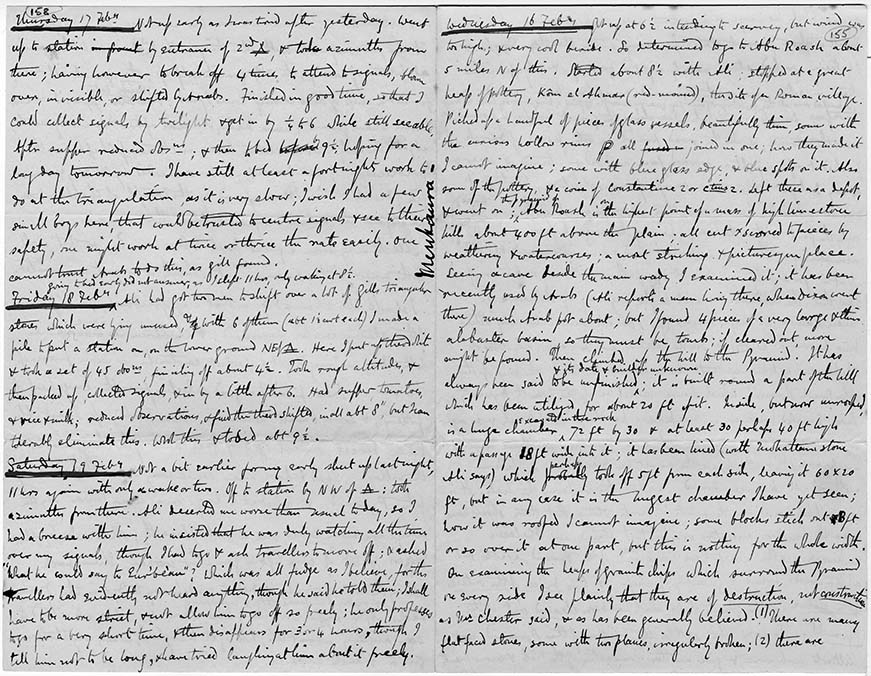 158
Thursday 17 Feby Not up early as I was tired after yesterday. Went
up to station in front by entrance of 2nd △, & took azimuths from
there; having however to break off 4 times, to attend to signals, blown
over, invisible, or shifted by Arabs. Finished in good time, so that I
could collect signals by twilight & get in by ¼ to 6 while still seeable.
After supper reduced obsns; & then to bed 9½ hoping for a
long day tomorrow. I have still at least a fortnight work to
do at the triangulation, as it is very slow; I wish I had a few
small boys here, that could be trusted to centre signals & see to their
safety, one might work at twice or thrice the rate easily. One
cannot trust Arabs to do this, as Gill found.
Menkaura
going to bed early did not answer, as I slept 11 hrs, only waking at 8½.
Friday 18 Feby Ali had got two men to shift over a lot of Gill's triangular
stones which were lying unused & with 6 of them (abt 1½ cwt each) I made a
pile to put a station on, on the lower ground NE of △. Here I put up theodolit
& took a set of 45 obsns finishing off about 4½. Took rough altitudes, &
then packed up collected signals, & in by a little after 6. Had supper tomatoes,
& rice & milk; reduced observations, & find theod shifted, in all abt 8", but I can
tolerably eliminate this. Wrote this & to bed abt 9½.
Saturday 19 Feby Not a bit earlier for my early shut up last night,
11 hrs again with only a wake or two. Off to station by NW of △: took
azimuths from there. Ali deserted me worse than usual to day, so I
had a breeze with him; he insisted that he was duly watching all the time
over my signals, though I had to go & ask travellers to move off; & asked
"What he could say to Eur'bêan"? Which was all fudge as I believe, for the
travellers had evidently not heard anything, though he said he told them; I shall
have to be more street, & not allow him to go off so freely; he only professes
to go for a very short time, & then disappears for 3 or 4 hours, though I
tell him not to be long, & have tried laughing at him about it freely.
155
Wednesday 16 Feby Got up at 6½ intending to survey, but wind was
too high; & very cool beside. So determined to go to Abu Roash about
5 miles N of this. Started about 8½ with Ali; stopped at a great
heap of pottery, Kom el Ahmar (red-mound), the site of a Roman village.
Picked up a handful of pieces of glass vessels, beautifully thin, some with
the curious hollow rims all joined in one; how they made it
I cannot imagine; some with blue glass edge, & blue spots on it. Also
some of the pottery, & a coin of Constantine 2 or Ctius 2. Left these as a deposit,
& went on; the pyramid of Abu Roash is on the highest point of a mass of high limestone
hill about 400 ft above the plain. all cut & scored to pieces by
weathering & watercourses; a most striking & picturesque place.
Seeing a cave beside the main wady I examined it; it has been
recently used by Arabs (Ali reports a man living there, when Dixon went
there) much Arab pot about; but I found 4 pieces of a very large & thin
alabaster basin, so they must be tombs; if cleared out more
might be found. Then climbed up the hill to the Pyramid. It has
always been said to be unfinished; & its date & builder unknown it is built round a part of the hill
which has been utilized for about 20 ft of it. Inside, but now unroofed,
is a huge chamber excavated in the rock 72 ft by 30 & at least 30 perhaps 40 ft high
with a passage 18 ft wide into it; it has been lined (with Mokattam stone
Ali says) which perhaps took off 5 ft from each side, leaving it 60 x 20
ft, but in any case it is the largest chamber I have yet seen;
how it was roofed I cannot imagine; some blocks stick out 8 ft
or so over it at one part, but this is nothing for the whole width.
On examining the heaps of granite chips which surround the Pyramid
on every side I see plainly that they are of destruction, not construction
as Mr Chester said, & as has been generally believed. (1) There are many
flat faced stones, some with two planes, irregularly broken; (2) there are